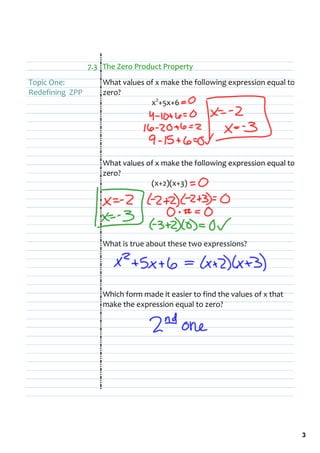 7.3 The Zero Product Property
Topic One:
Redefining ZPP
What values of x make the following expression equal to
zero?
x²+5x+6 =0
4-10+6=0
16-20+6=2
9-15+6=0✓
x=-2
x=-3
What values of x make the following expression equal to
zero?
(x+2)(x+3) =0
x=-2 (-2+2)(-2+3)=0
x=-3 0·#=0
(-3+2)(0)=0✓
What is true about these two expressions?
x²+5x+6 = (x+2)(x+3)
Which form made it easier to find the values of x that
make the expression equal to zero?
2nd one
3